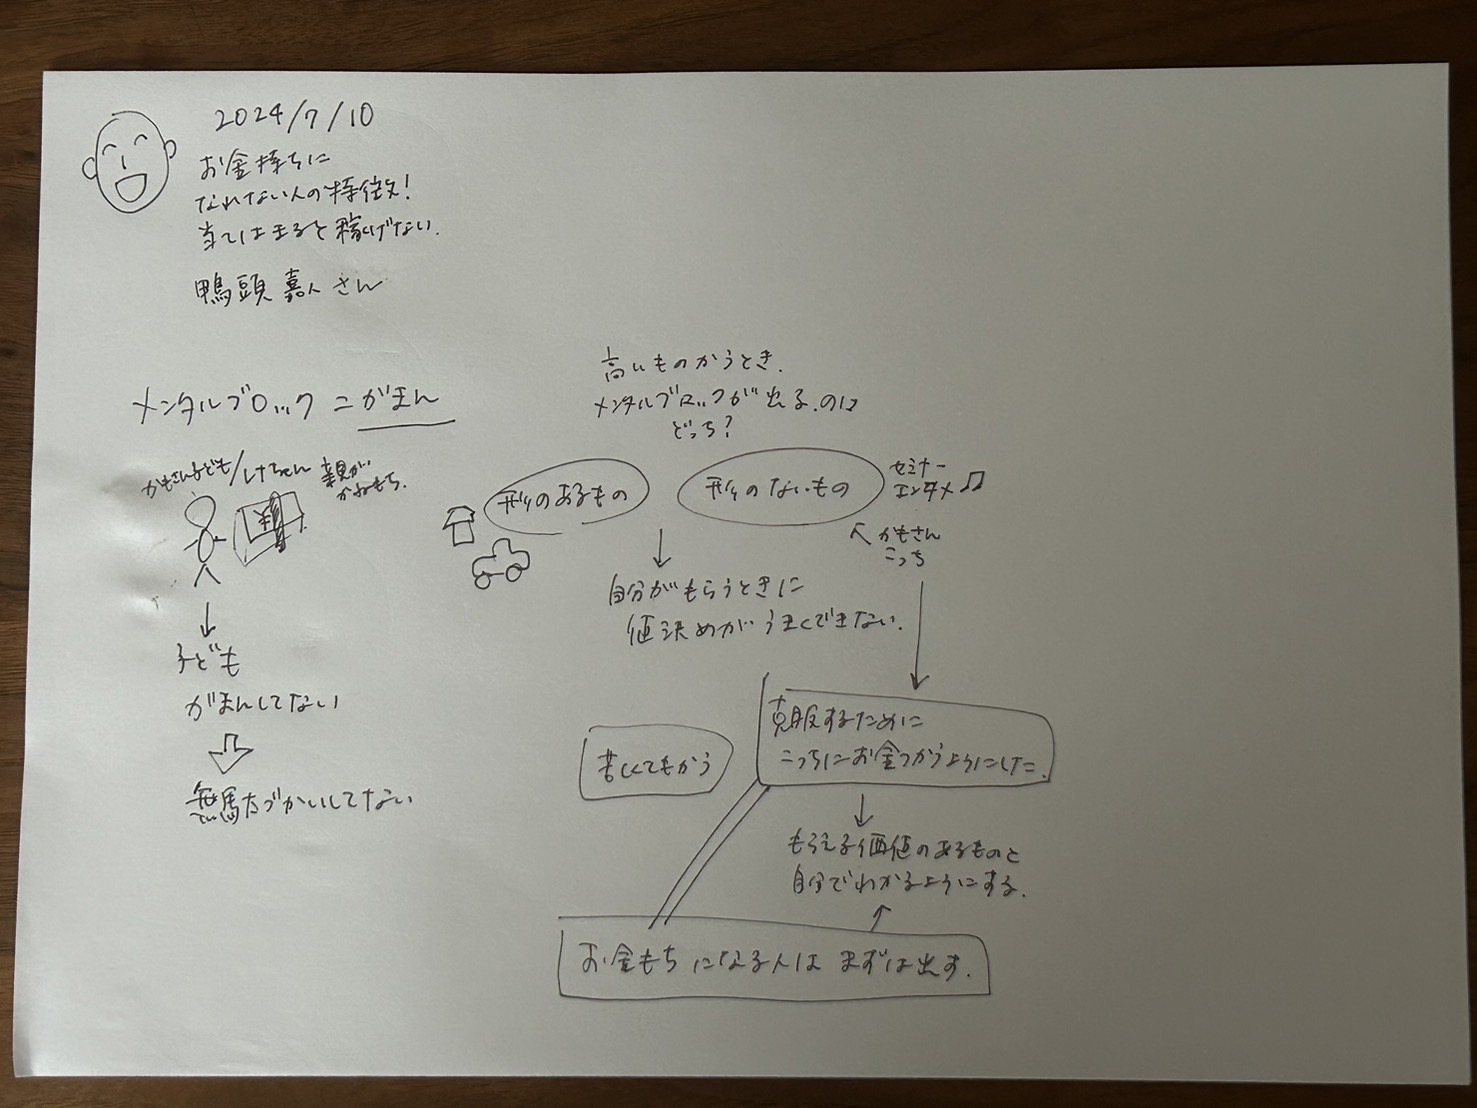 2024/7/10
お金持ちに
なれない人の特徴!
当てはまると稼げない.
鴨頭 嘉人 さん
メンタルブロック = がまん
かもさん子ども/
親が
かねもち.
¥
↓
子ども
がまんしてない
無駄づかいしてない
高いものかうとき.
メンタルブロックが出る.のは
どっち?
形のあるもの
形のないもの
セミナー
エンタメ♫
かもさん
こっち
↓
自分がもらうときに
値決めがうまくできない.
克服するために
こっちにお金つかうようにした.
苦しくてもかう
↓
もらえる価値のあるものと
自分でわかるようにする.
お金もちになる人は まずは出す.